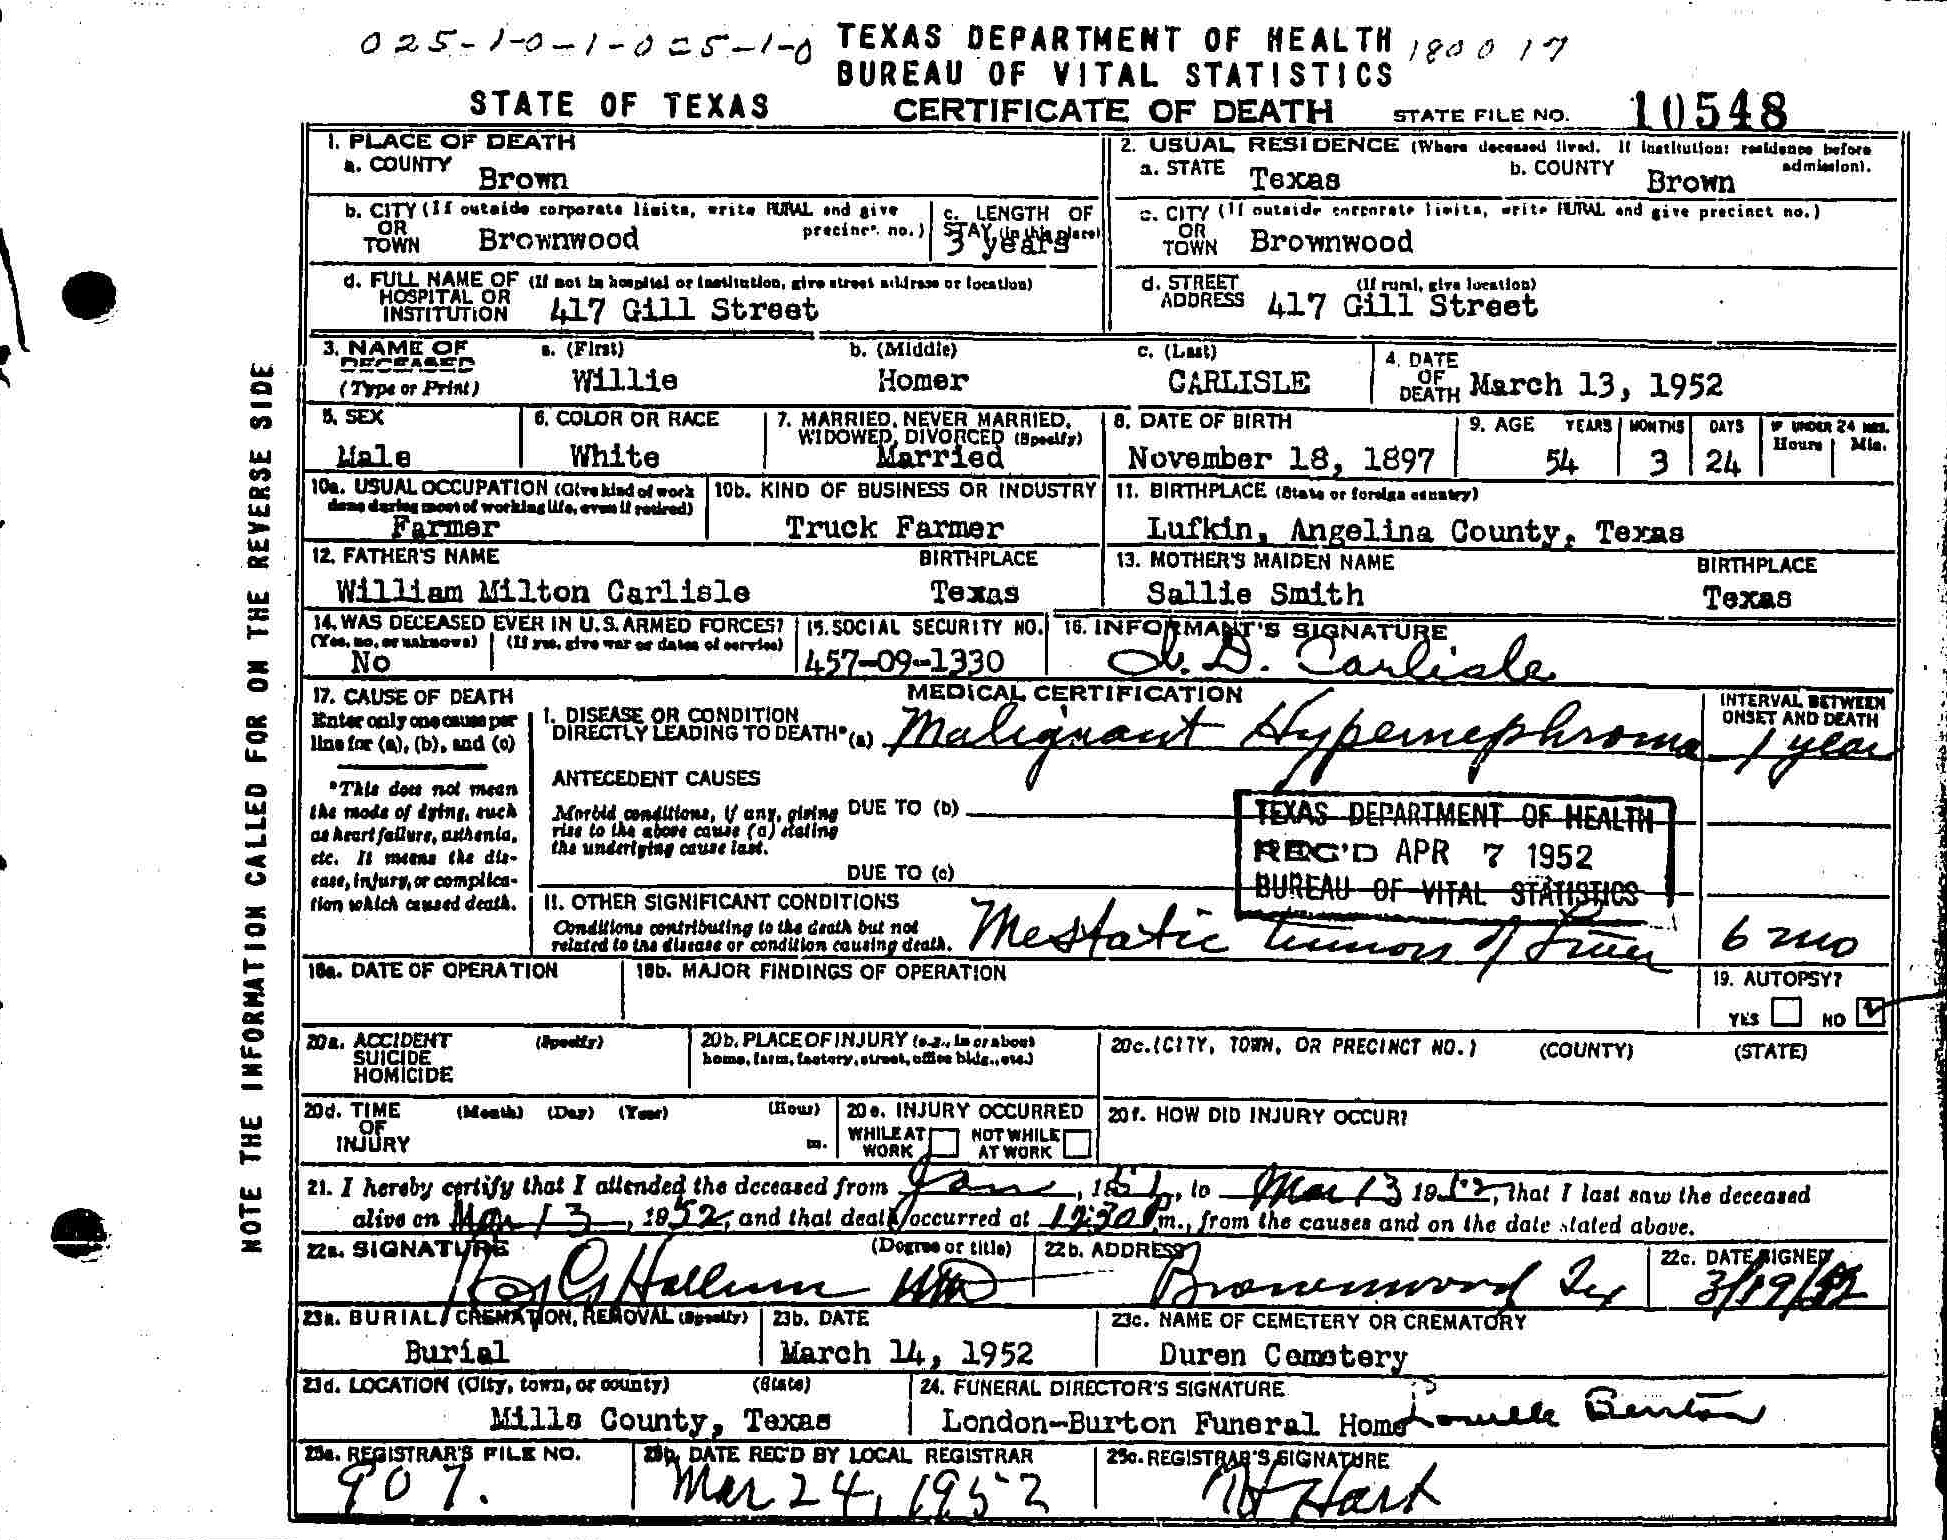 025-1-0-1-025-1-0 TEXAS DEPARTMENT OF HEALTH 1800 17
BUREAU OF VITAL STATISTICS
STATE OF TEXAS CERTIFICATE OF DEATH STATE FILE NO. 10548
1. PLACE OF DEATH
a. COUNTY Brown
2. USUAL RESIDENCE (Where deceased lived. If institution: residence before admission).
a. STATE Texas b. COUNTY Brown
b. CITY (If outside corporate limits, write RURAL and give precinct no.)
OR TOWN Brownwood
c. LENGTH OF STAY (in this place) 3 years
c. CITY (If outside corporate limits, write RURAL and give precinct no.)
OR TOWN Brownwood
d. FULL NAME OF (If not in hospital or institution, give street address or location)
HOSPITAL OR INSTITUTION 417 Gill Street
d. STREET ADDRESS (If rural, give location)
417 Gill Street
3. NAME OF DECEASED (Type or Print)
a. (First) Willie
b. (Middle) Homer
c. (Last) CARLISLE
4. DATE OF DEATH March 13, 1952
5. SEX Male
6. COLOR OR RACE White
7. MARRIED, NEVER MARRIED, WIDOWED, DIVORCED (Specify) Married
8. DATE OF BIRTH November 18, 1897
9. AGE YEARS 54 MONTHS 3 DAYS 24 IF UNDER 24 HRS. Hours Min.
10a. USUAL OCCUPATION (Give kind of work done during most of working life, even if retired) Farmer
10b. KIND OF BUSINESS OR INDUSTRY Truck Farmer
11. BIRTHPLACE (State or foreign country) Lufkin, Angelina County, Texas
12. FATHER'S NAME BIRTHPLACE
William Milton Carlisle Texas
13. MOTHER'S MAIDEN NAME BIRTHPLACE
Sallie Smith Texas
14. WAS DECEASED EVER IN U.S. ARMED FORCES?
(Yes, no, or unknown) (If yes, give war or dates of service)
No
15. SOCIAL SECURITY NO. 457-09-1330
16. INFORMANT'S SIGNATURE D. Carlisle
17. CAUSE OF DEATH
Enter only one cause per line for (a), (b), and (c)
*This does not mean the mode of dying, such as heart failure, asthenia, etc. It means the disease, injury, or complication which caused death.
MEDICAL CERTIFICATION
I. DISEASE OR CONDITION DIRECTLY LEADING TO DEATH* (a) Malignant Hypernephroma
INTERVAL BETWEEN ONSET AND DEATH 1 year
ANTECEDENT CAUSES
Morbid conditions, if any, giving rise to the above cause (a) stating the underlying cause last.
DUE TO (b)
DUE TO (c)
TEXAS DEPARTMENT OF HEALTH
REC'D APR 7 1952
BUREAU OF VITAL STATISTICS
II. OTHER SIGNIFICANT CONDITIONS
Conditions contributing to the death but not related to the disease or condition causing death. Mestatic tumors of Liver 6 mo
18a. DATE OF OPERATION
18b. MAJOR FINDINGS OF OPERATION
19. AUTOPSY?
YES NO
20a. ACCIDENT SUICIDE HOMICIDE (Specify)
20b. PLACE OF INJURY (e.g., in or about home, farm, factory, street, office bldg., etc.)
20c. (CITY, TOWN, OR PRECINCT NO.) (COUNTY) (STATE)
20d. TIME OF INJURY (Month) (Day) (Year) (Hour) m.
20e. INJURY OCCURRED
WHILE AT WORK NOT WHILE AT WORK
20f. HOW DID INJURY OCCUR?
21. I hereby certify that I attended the deceased from Jan, 1951, to Mar 13 1952, that I last saw the deceased
alive on Mar 13, 1952, and that death occurred at 12:30 P m., from the causes and on the date stated above.
22a. SIGNATURE (Degree or title) Hallum MD
22b. ADDRESS Brownwood Tex
22c. DATE SIGNED 3/19/52
23a. BURIAL, CREMATION, REMOVAL (Specify) Burial
23b. DATE March 14, 1952
23c. NAME OF CEMETERY OR CREMATORY Duren Cemetery
23d. LOCATION (City, town, or county) (State)
Mills County, Texas
24. FUNERAL DIRECTOR'S SIGNATURE
London-Burton Funeral Home Burton
25a. REGISTRAR'S FILE NO. 907.
25b. DATE REC'D BY LOCAL REGISTRAR Mar 24, 1952
25c. REGISTRAR'S SIGNATURE Hart
NOTE THE INFORMATION CALLED FOR ON THE REVERSE SIDE